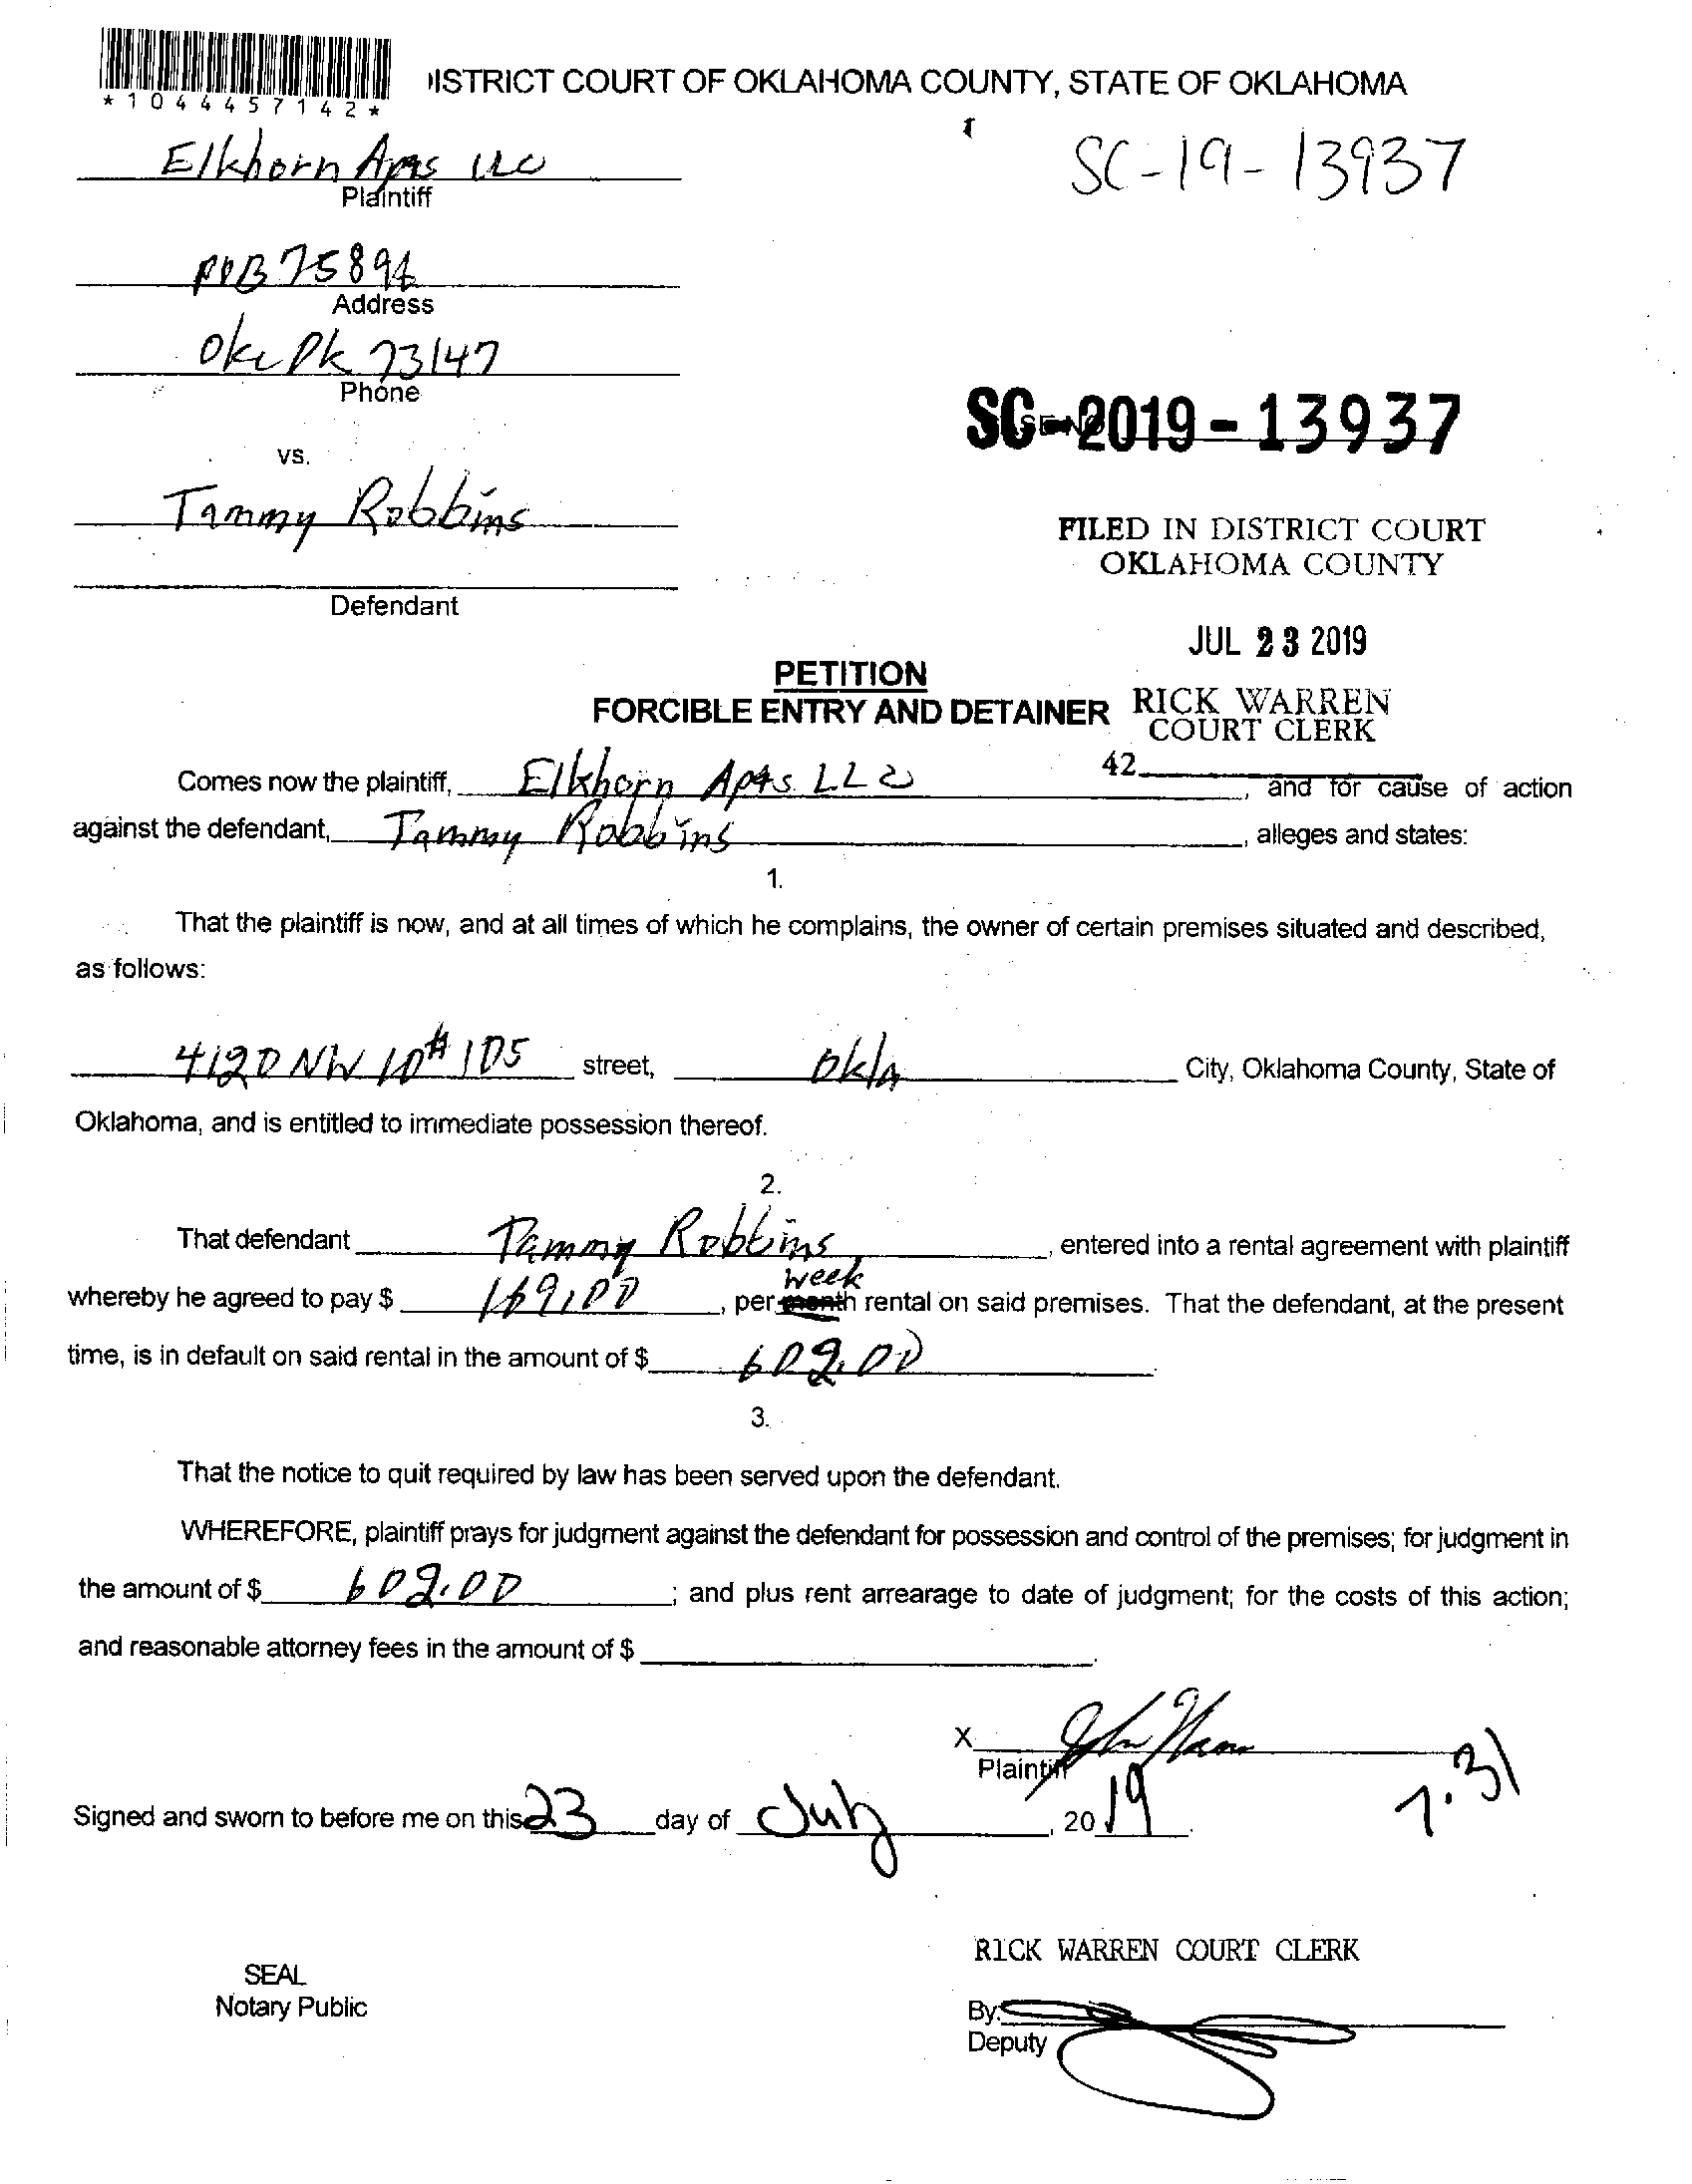 *1044457142*
ISTRICT COURT OF OKLAHOMA COUNTY, STATE OF OKLAHOMA
Elkhorn Apts LLC
Plaintiff
SC-19-13937
POB 75894
Address
Okc Ok 73147
Phone
SC-2019-13937
vs.
Tammy Robbins
Defendant
FILED IN DISTRICT COURT
OKLAHOMA COUNTY
JUL 23 2019
PETITION
FORCIBLE ENTRY AND DETAINER
RICK WARREN
COURT CLERK
42
Comes now the plaintiff, Elkhorn Apts LLC, and for cause of action
against the defendant, Tammy Robbins, alleges and states:
1.
That the plaintiff is now, and at all times of which he complains, the owner of certain premises situated and described,
as follows:
4120 NW 10 # 105 street, Okla City, Oklahoma County, State of
Oklahoma, and is entitled to immediate possession thereof.
2.
That defendant Tammy Robbins, entered into a rental agreement with plaintiff
week
whereby he agreed to pay $ 169.00, per month rental on said premises. That the defendant, at the present
time, is in default on said rental in the amount of $ 602.00.
3.
That the notice to quit required by law has been served upon the defendant.
WHEREFORE, plaintiff prays for judgment against the defendant for possession and control of the premises; for judgment in
the amount of $ 602.00; and plus rent arrearage to date of judgment; for the costs of this action;
and reasonable attorney fees in the amount of $
X
Plaintiff
7.31
Signed and sworn to before me on this 23 day of July, 2019.
RICK WARREN COURT CLERK
SEAL
Notary Public
By:
Deputy